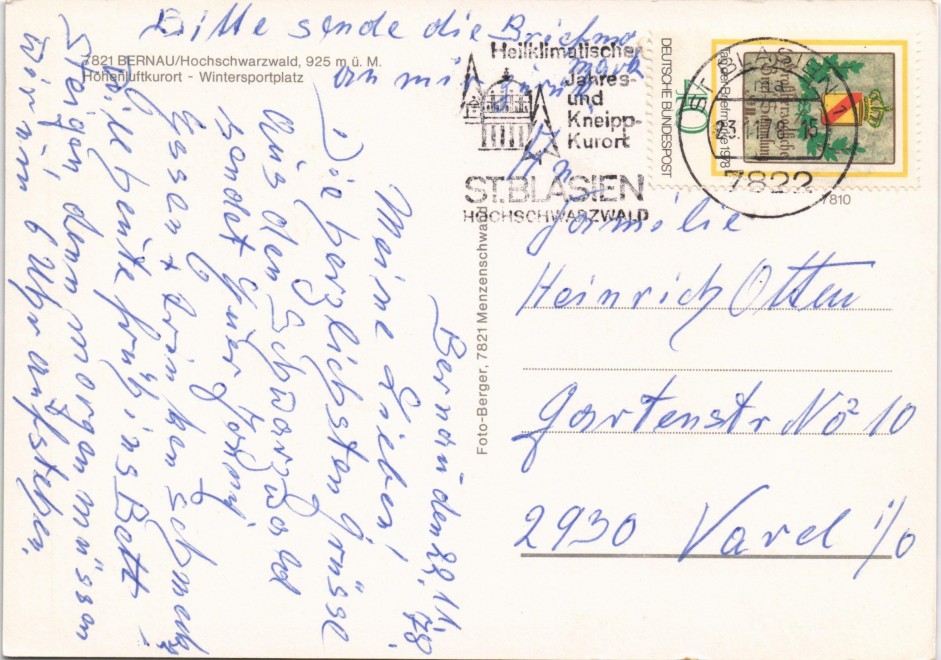 Bitte sende die Briefmarke
an mich zurück
7821 BERNAU/Hochschwarzwald, 925 m ü. M.
Höhenluftkurort - Wintersportplatz
Bernau den 22.11.78.
Meine Lieben!
Die herzlichsten Grüsse
Aus den Schwarzwald
sendet Euer
Essen + trinken schmeckt
Will heute früh ins Bett
steigen, denn morgen müssen
wir um 6 Uhr aufstehen.
Foto-Berger, 7821 Menzenschwand
Heilklimatischer
Jahres-
und
Kneipp-
Kurort
ST.BLASIEN
HOCHSCHWARZWALD
DEUTSCHE BUNDESPOST
Tag der Briefmarke 1978
ST. BLASIEN 1
7822
7810
Familie
Heinrich Otten
Gartenstr No 10
2930 Varel i/o